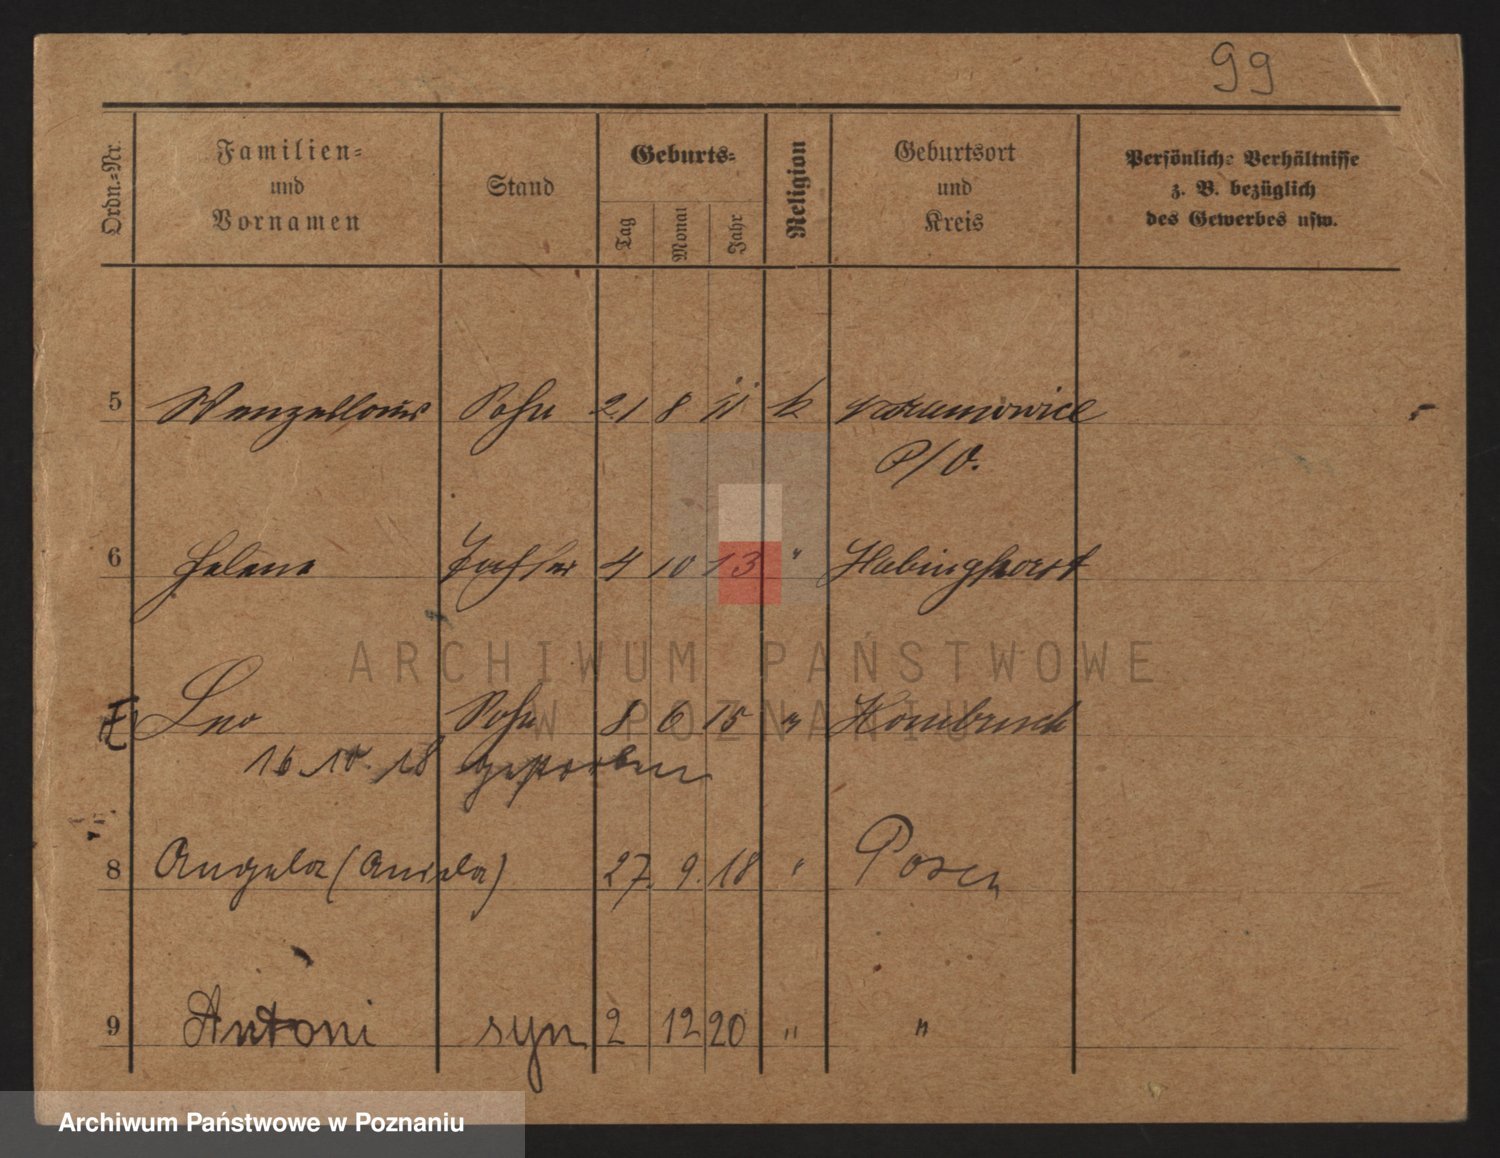 99
Ordn.-Nr.
Familien-
und
Vornamen
Stand
Geburts-
Tag
Monat
Jahr
Religion
Geburtsort
und
Kreis
Persönliche Verhältnisse
z. B. bezüglich
des Gewerbes usw.
5 Wenzeslaus Sohn 21 8 11 k.
P/O.
6 Helene Tochter 4 10 13 " Habinghorst
Leo Sohn 8 6 15 " Hombruch
16.10.18 gestorben
8 Angela (Aniela) 27. 9. 18 " Posen
9 Antoni syn 2 12 20 " "
ARCHIWUM PAŃSTWOWE
W POZNANIU
Archiwum Państwowe w Poznaniu